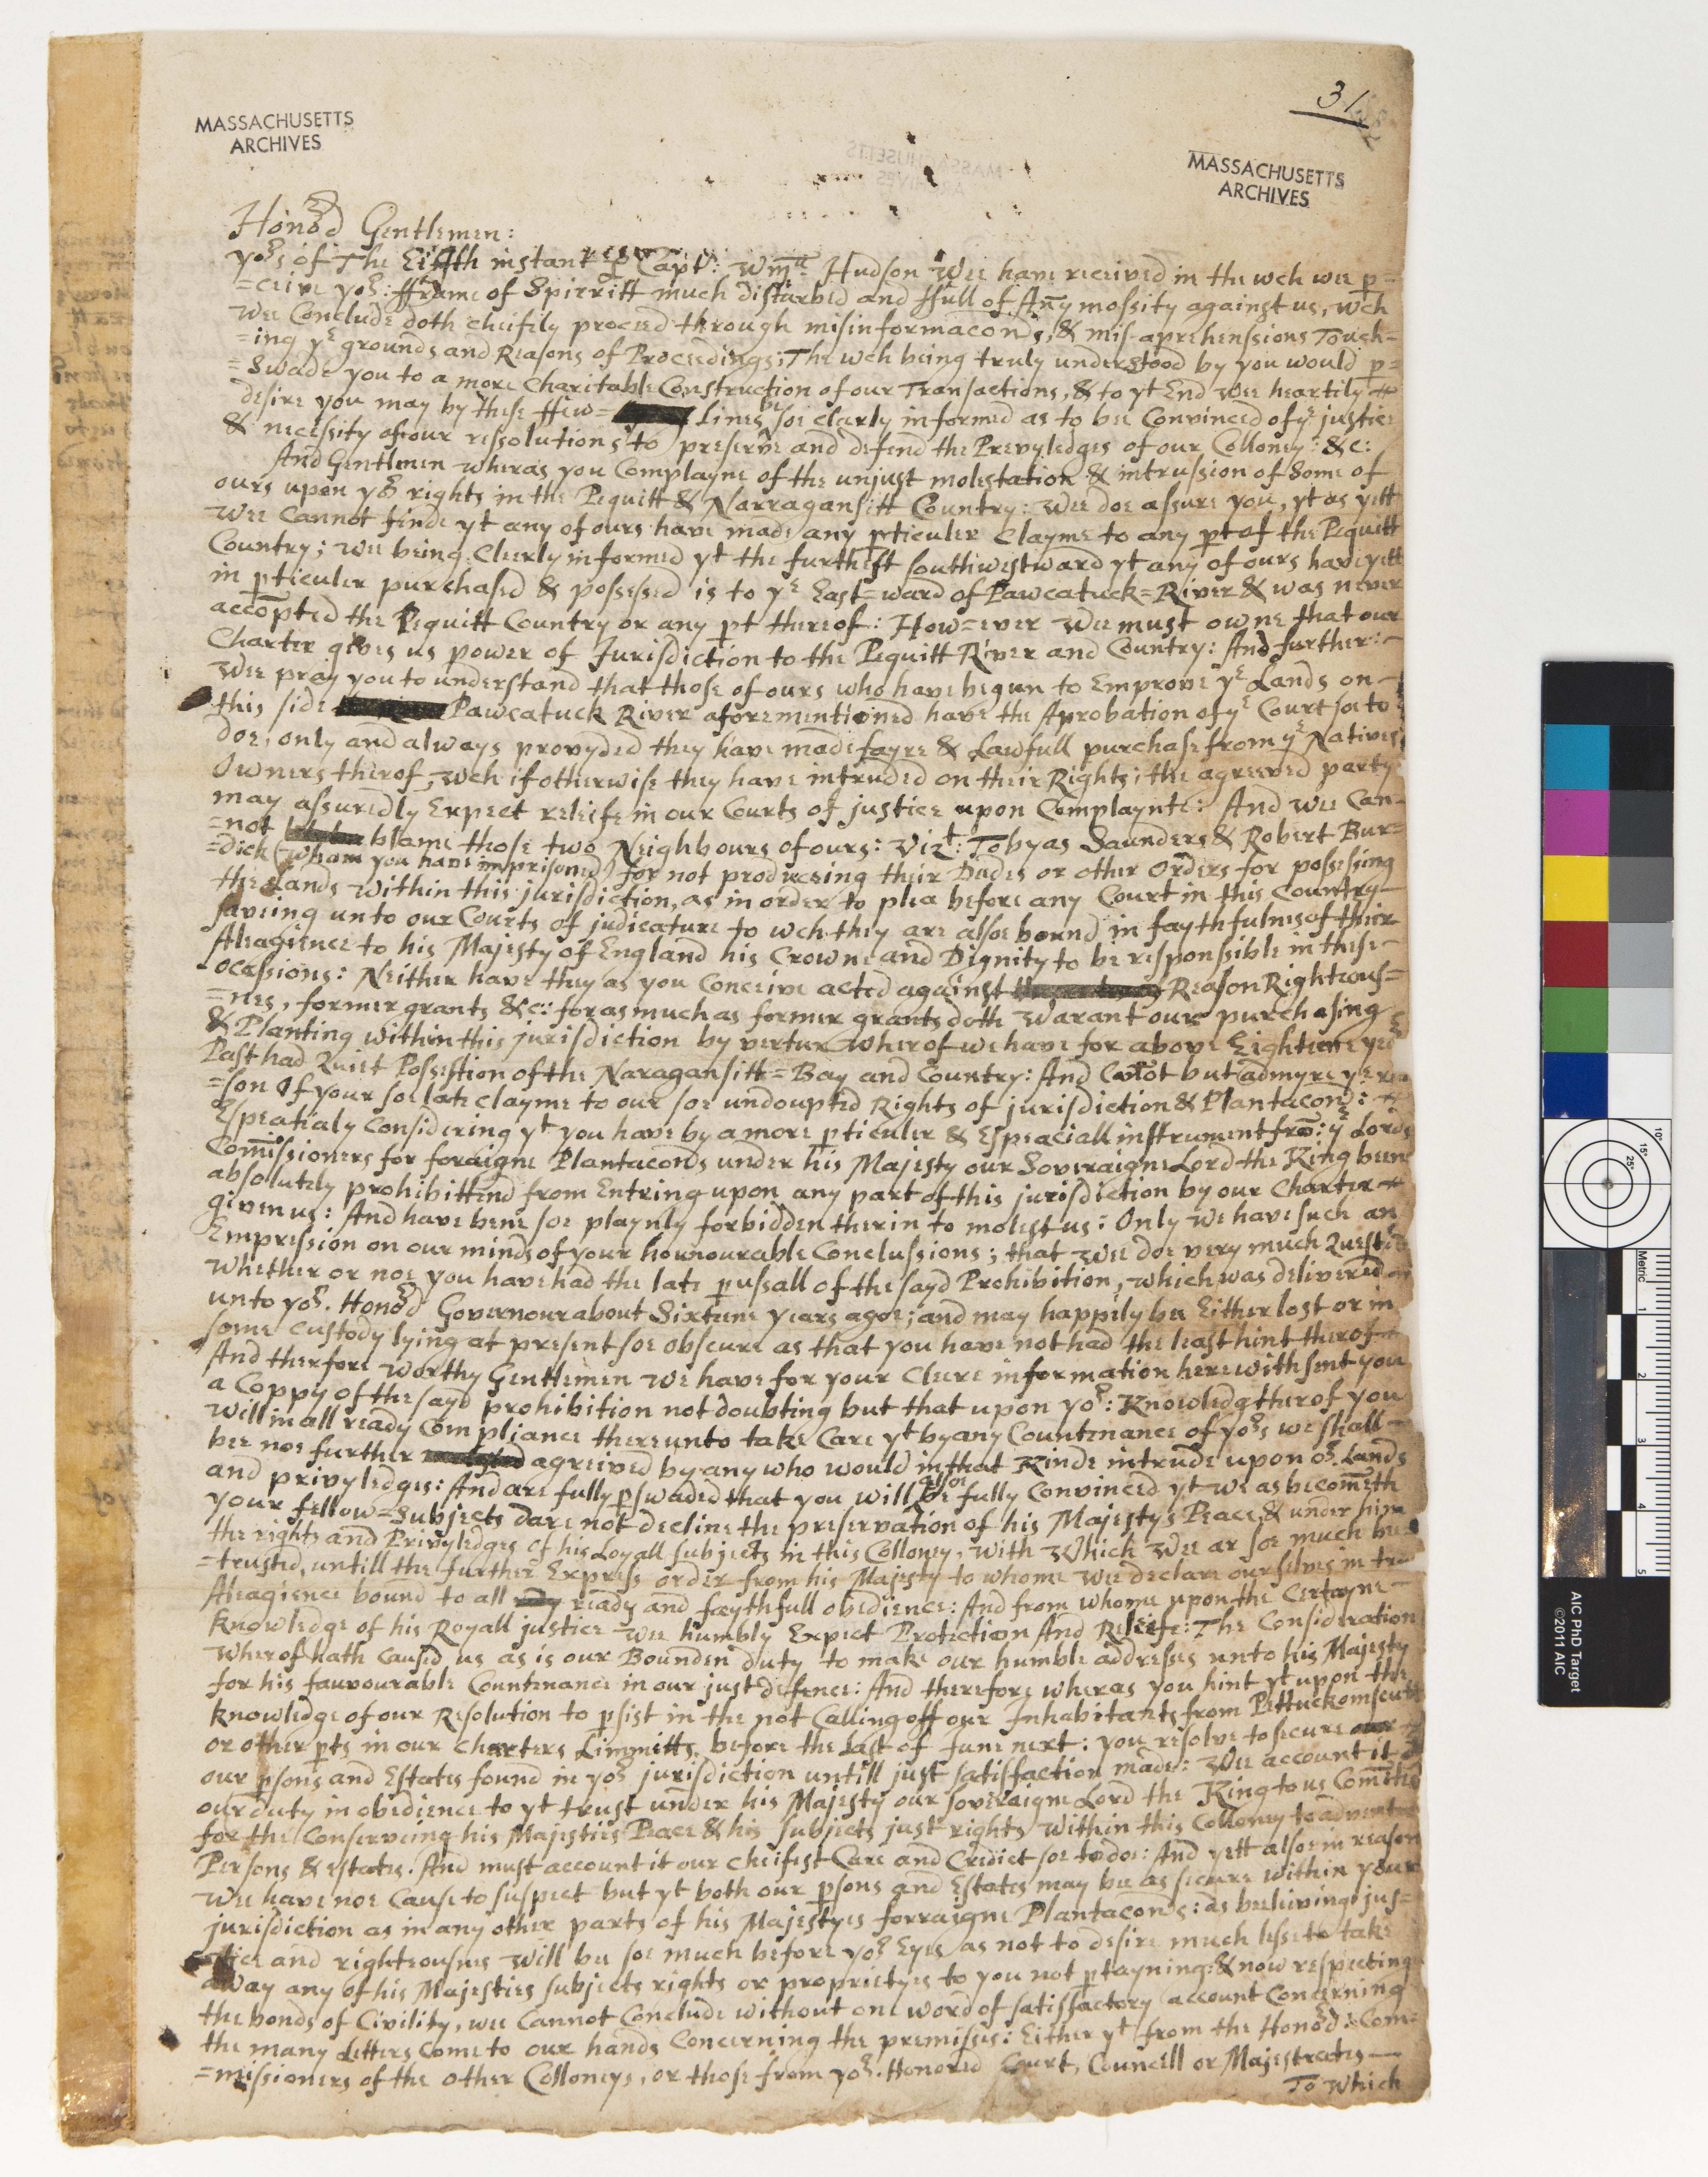 31
MASSACHUSETTS
ARCHIVES
MASSACHUSETTS
ARCHIVES
MASSACHUSETTS
ARCHIVES
Honord Gentlemen:
yors of The instant Capt: Wm Hudson Wee have received in the wch wee p=
=ceive yor: fframe of Spirritt much disturbed and ffull of Any mossity against us, wch
wee Conclude doth cheifily proceed through misinformacons, & mis-aprehenssions Touch=
=ing ye grounds and Reasons of Proceedings; The wch being truly understood by you would p=
=swade you to a more Charitable Construction of our Transactions, & to yt End wee heartily
desire you may by these ffew= Lines be soe clerly informed as to bee Convinced of ye justice
& necessity of our ressolutions to preserve and defend the Prevyledges of our Colloney: &c:
And Gentlmen wheras you Complayne of the unjust molestation & intrussion of Some of
ours upon yor rights in the Pequitt & Narragansitt Country: wee doe assure you, yt as yett
wee Cannot finde yt any of ours have made any pticuler Clayme to any pt of the Pequitt
Country; wee being Cleerly informed yt the furthest southwestward yt any of ours have yett
in pticuler purchased & possessed is to ye East=ward of Pawcatuck=River & was never
accopted the Pequitt Country or any pt thereof: How=ever wee must owne that our
Charter gives us power of Jurisdiction to the Pequitt River and Country: And further:
wee pray you to understand that those of ours who have begun to Emprove ye Lands on
this side Pawcatuck River aforementioned have the Aprobation of ye Court soe to
doe, only and always provyded they have made fayre & Lawfull purchase from ye Natives
Owners therof, wch if otherwise they have intruded on their Rights; the agreeved party
may assuredly Expect releife in our Courts of justice upon Complaynte: And wee Can=
=not blame those two Neighbours of ours: vizt: Tobyas Saunders & Robert Bur=
=dick (whom you have imprisoned) for not produceing their Deeds or other Orders for possessing
the Lands within this jurisdiction, as in order to plea before any Court in this Country
saveing unto our Courts of judicature to wch they are alsoe bound in faythfulnes of their
Aleagience to his Majesty of England his Crowne and Dignity to be responssible in these
ocassions: Neither have they as you Conceive acted against Reason Righteous=
=nes, former grants &c: forasmuch as former grants doth Warant our purchasing
& Planting within this jurisdiction by vertue wherof we have for above Eighteene yers
Past had Quiet Possesstion of the Naragansitt=Bay and Country: And Canot but admyre ye rea
=son Of your soe late clayme to our soe undoupted Rights of jurisdiction & Plantacons:
Espeatialy Considering yt you have by a more pticuler & Espeaciall instrument fro: ye Lords
Comissioners for foraigne Plantacons under his Majesty our Soveraigne Lord the King been
absolutely prohibittend from Entring upon any part of this jurisdiction by our Charter
given us: And have bene soe playnly forbidden therin to molest us: Only we have such an
Empression on our minds of your hounourable Conclussions; that wee doe very much Questio
whether or noe you have had the late pussall of the sayd Prohibition, which was delivered
unto yor. Honord Governour about Sixteene years agoe; and may happily bee Either lost or in
some custody lying at present soe obscure as that you have not had the least hint therof
And therfore worthy Gentlemen we have for your Clere information herewith sent you
a Coppy of the sayd prohibition not doubting but that upon yor: Knowledg therof you
will in all ready Compliance thereunto take Care yt by any Countenance of yors we shall
bee noe further agreived by any who would in that Kinde intrude upon or. Lands
and privyledges: And are fully pswaded that you will alsoe be fully Convinced yt we as becometh
your fellow=Subjects dare not decline the preservation of his Majestys Peace & under him
the rights and Privyledges of his Loyall subjects in this Colloney, with which wee ar soe much be
=trusted, untill the further Express order from his Majesty to whome wee declare ourselves in tru
Aleagience bound to all ready and faythfull obedience: And from whome upon the Certayne
knowledge of his Royall justice wee humbly Expect Protection And Releife: The Consideration
wherof hath Caused us as is our Bounden duty to make our humble addresses unto his Majesty
for his favourable Countenance in our just defence: And therefore wheras you hint yt upon the
knowledge of our Resolution to psist in the not Calling off our Inhabitants from Pettuckomscutt
or other pts in our Charters Limmitts, before the Last of June next: you resolve to secure our
our psons and Estates found in yor jurisdiction untill just satisfaction made: Wee account it
our duty in obedience to yt trust under his Majesty our soveraigne Lord the King to us Comited
for the Conserveing his Majesties Peace & his subjects just rights within this Colloney to adventure
Persons & estates. And must account it our cheifest Care and Credict soe to doe: And yett alsoe in reason
wee have noe Cause to suspect but yt both our psons and Estates may bee as secure within your
jurisdiction as in any other parts of his Majestyes forraigne Plantacons: as beeleiving jus=
=tice and righteousnes will bee soe much before yor Eyes as not to desire much lesse to take
away any of his Majesties subjects rights or proprietyes to you not ptayning: & now respecting
the bonds of Civility, wee Cannot Conclude without one word of satisfactory account Concerning
the many Letters Come to our hands Concerning the premisses: Either yt from the Honord: Com=
=missioners of the other Colloneys, or those from yor. Honored Court, Councell or Majestrates
To which
Metric
1
2
3
4
5
AIC PhD Target
©2011 AIC